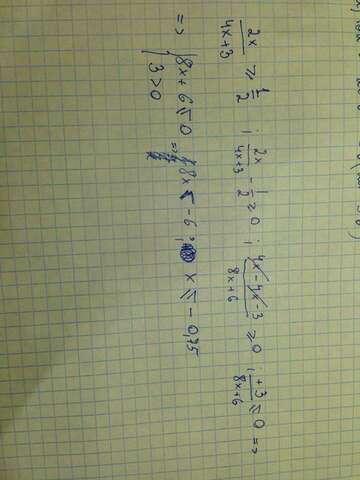 2x/(4x+3) ≥ 1/2 ; 2x/(4x+3) - 1/2 ≥ 0 ; (4x-4x-3)/(8x+6) ≥ 0 ; (+3)/(8x+6) ≤ 0 =>
=> { 8x+6 ≤ 0 => 8x ≤ -6 ; x ≤ -0,75
3>0